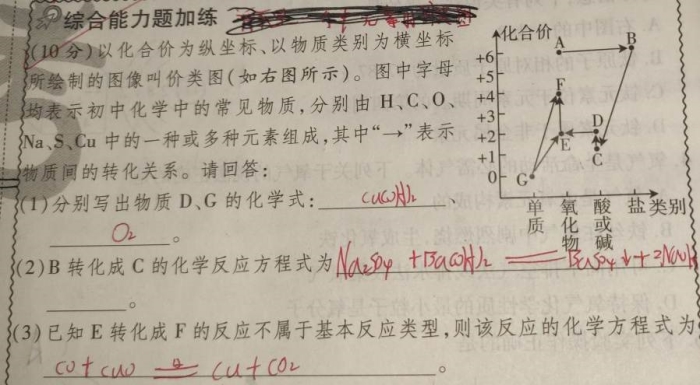 综合能力题加练
(10分)以化合价为纵坐标、以物质类别为横坐标
所绘制的图像叫价类图(如右图所示)。图中字母
均表示初中化学中的常见物质,分别由H、C、O、
Na、S、Cu中的一种或多种元素组成,其中“→”表示
物质间的转化关系。请回答:
(1)分别写出物质D、G的化学式: Cu(OH)2 、
O2 。
(2)B转化成C的化学反应方程式为 Na2SO4 + Ba(OH)2 = BaSO4↓ + 2NaOH
。
(3)已知E转化成F的反应不属于基本反应类型,则该反应的化学方程式为
CO + CuO △ Cu + CO2 。
化合价
+6
+5
+4
+3
+2
+1
0
A
B
F
D
E
C
G
单质
氧化物
酸或碱
盐
类别